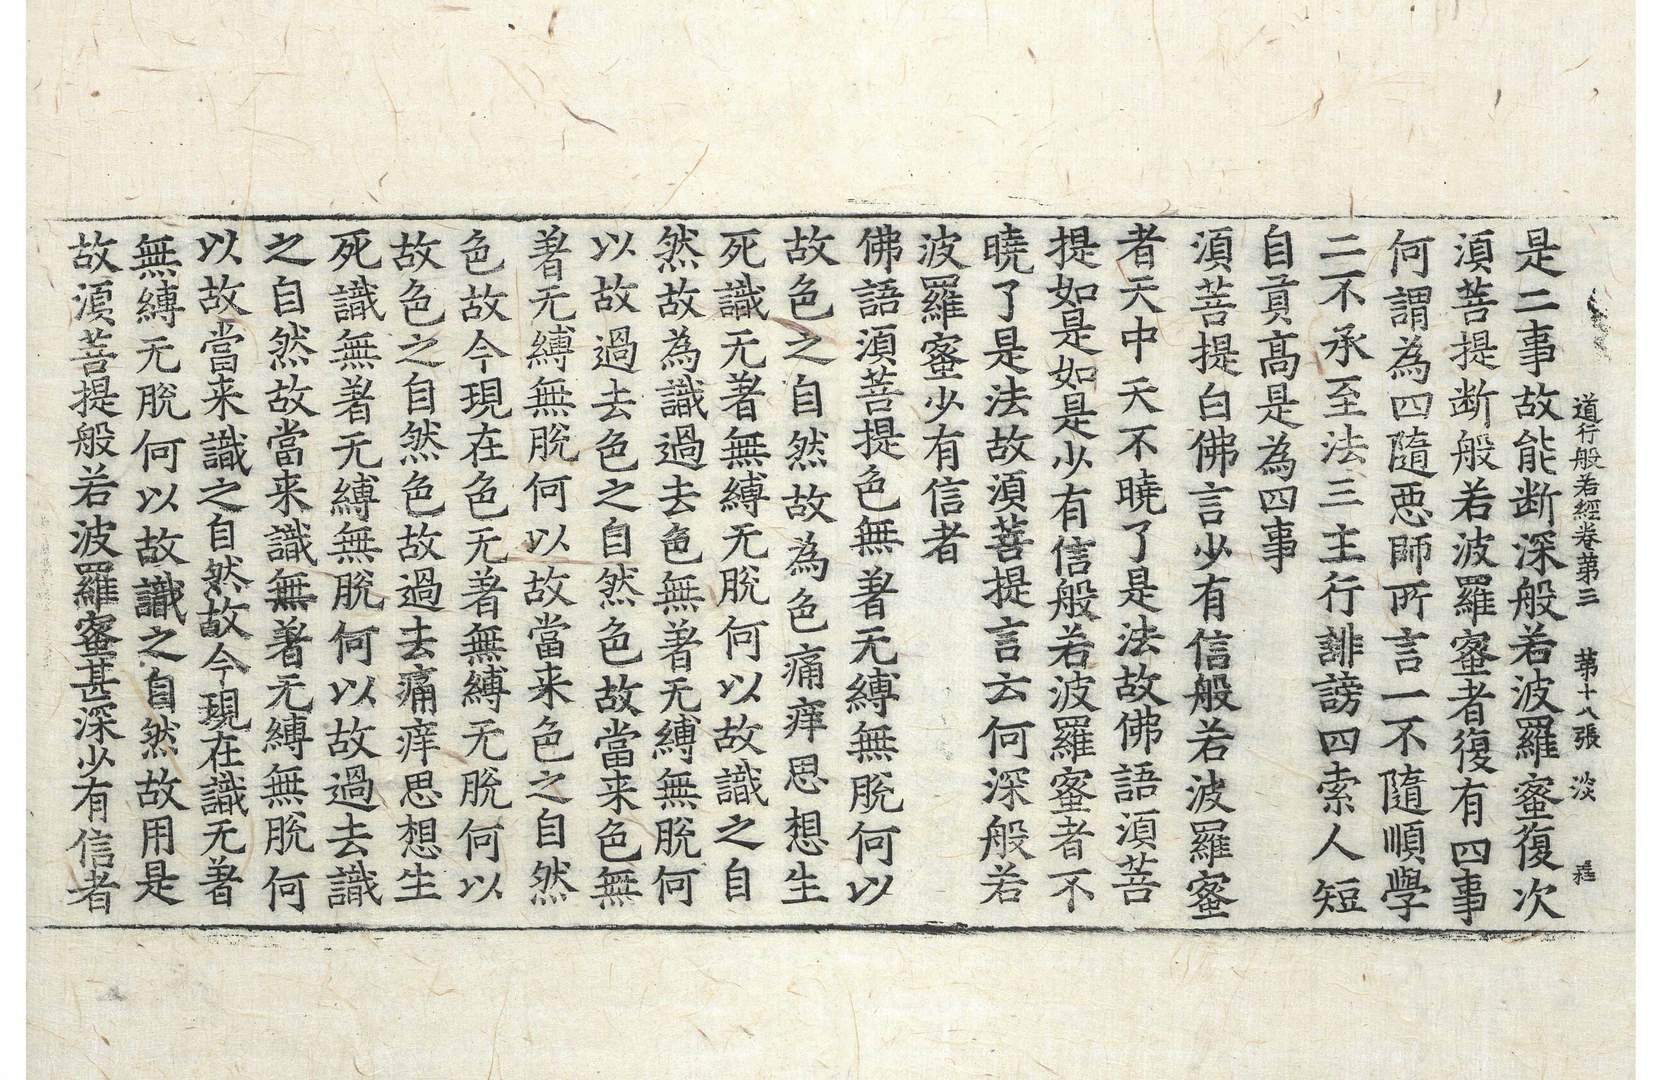 道行般若經卷第三 第十八張 淡
是二事故能断深般若波羅蜜復次
湏菩提断般若波羅蜜者復有四事
何謂為四隨惡師所言一不隨順學
二不承至法三主行誹謗四索人短
自貢高是為四事
湏菩提白佛言少有信般若波羅蜜
者天中天不曉了是法故佛語湏菩
提如是如是少有信般若波羅蜜者不
曉了是法故湏菩提言云何深般若
波羅蜜少有信者
佛語湏菩提色無著无縛無脫何以
故色之自然故為色痛痒思想生
死識无著無縛无脫何以故識之自
然故為識過去色無著无縛無脫何
以故過去色之自然色故當来色無
著无縛無脫何以故當来色之自然
色故今現在色无著無縛无脫何以
故色之自然色故過去痛痒思想生
死識無著无縛無脫何以故過去識
之自然故當来識無著无縛無脫何
以故當来識之自然故今現在識无著
無縛无脫何以故識之自然故用是
故湏菩提般若波羅蜜甚深少有信者